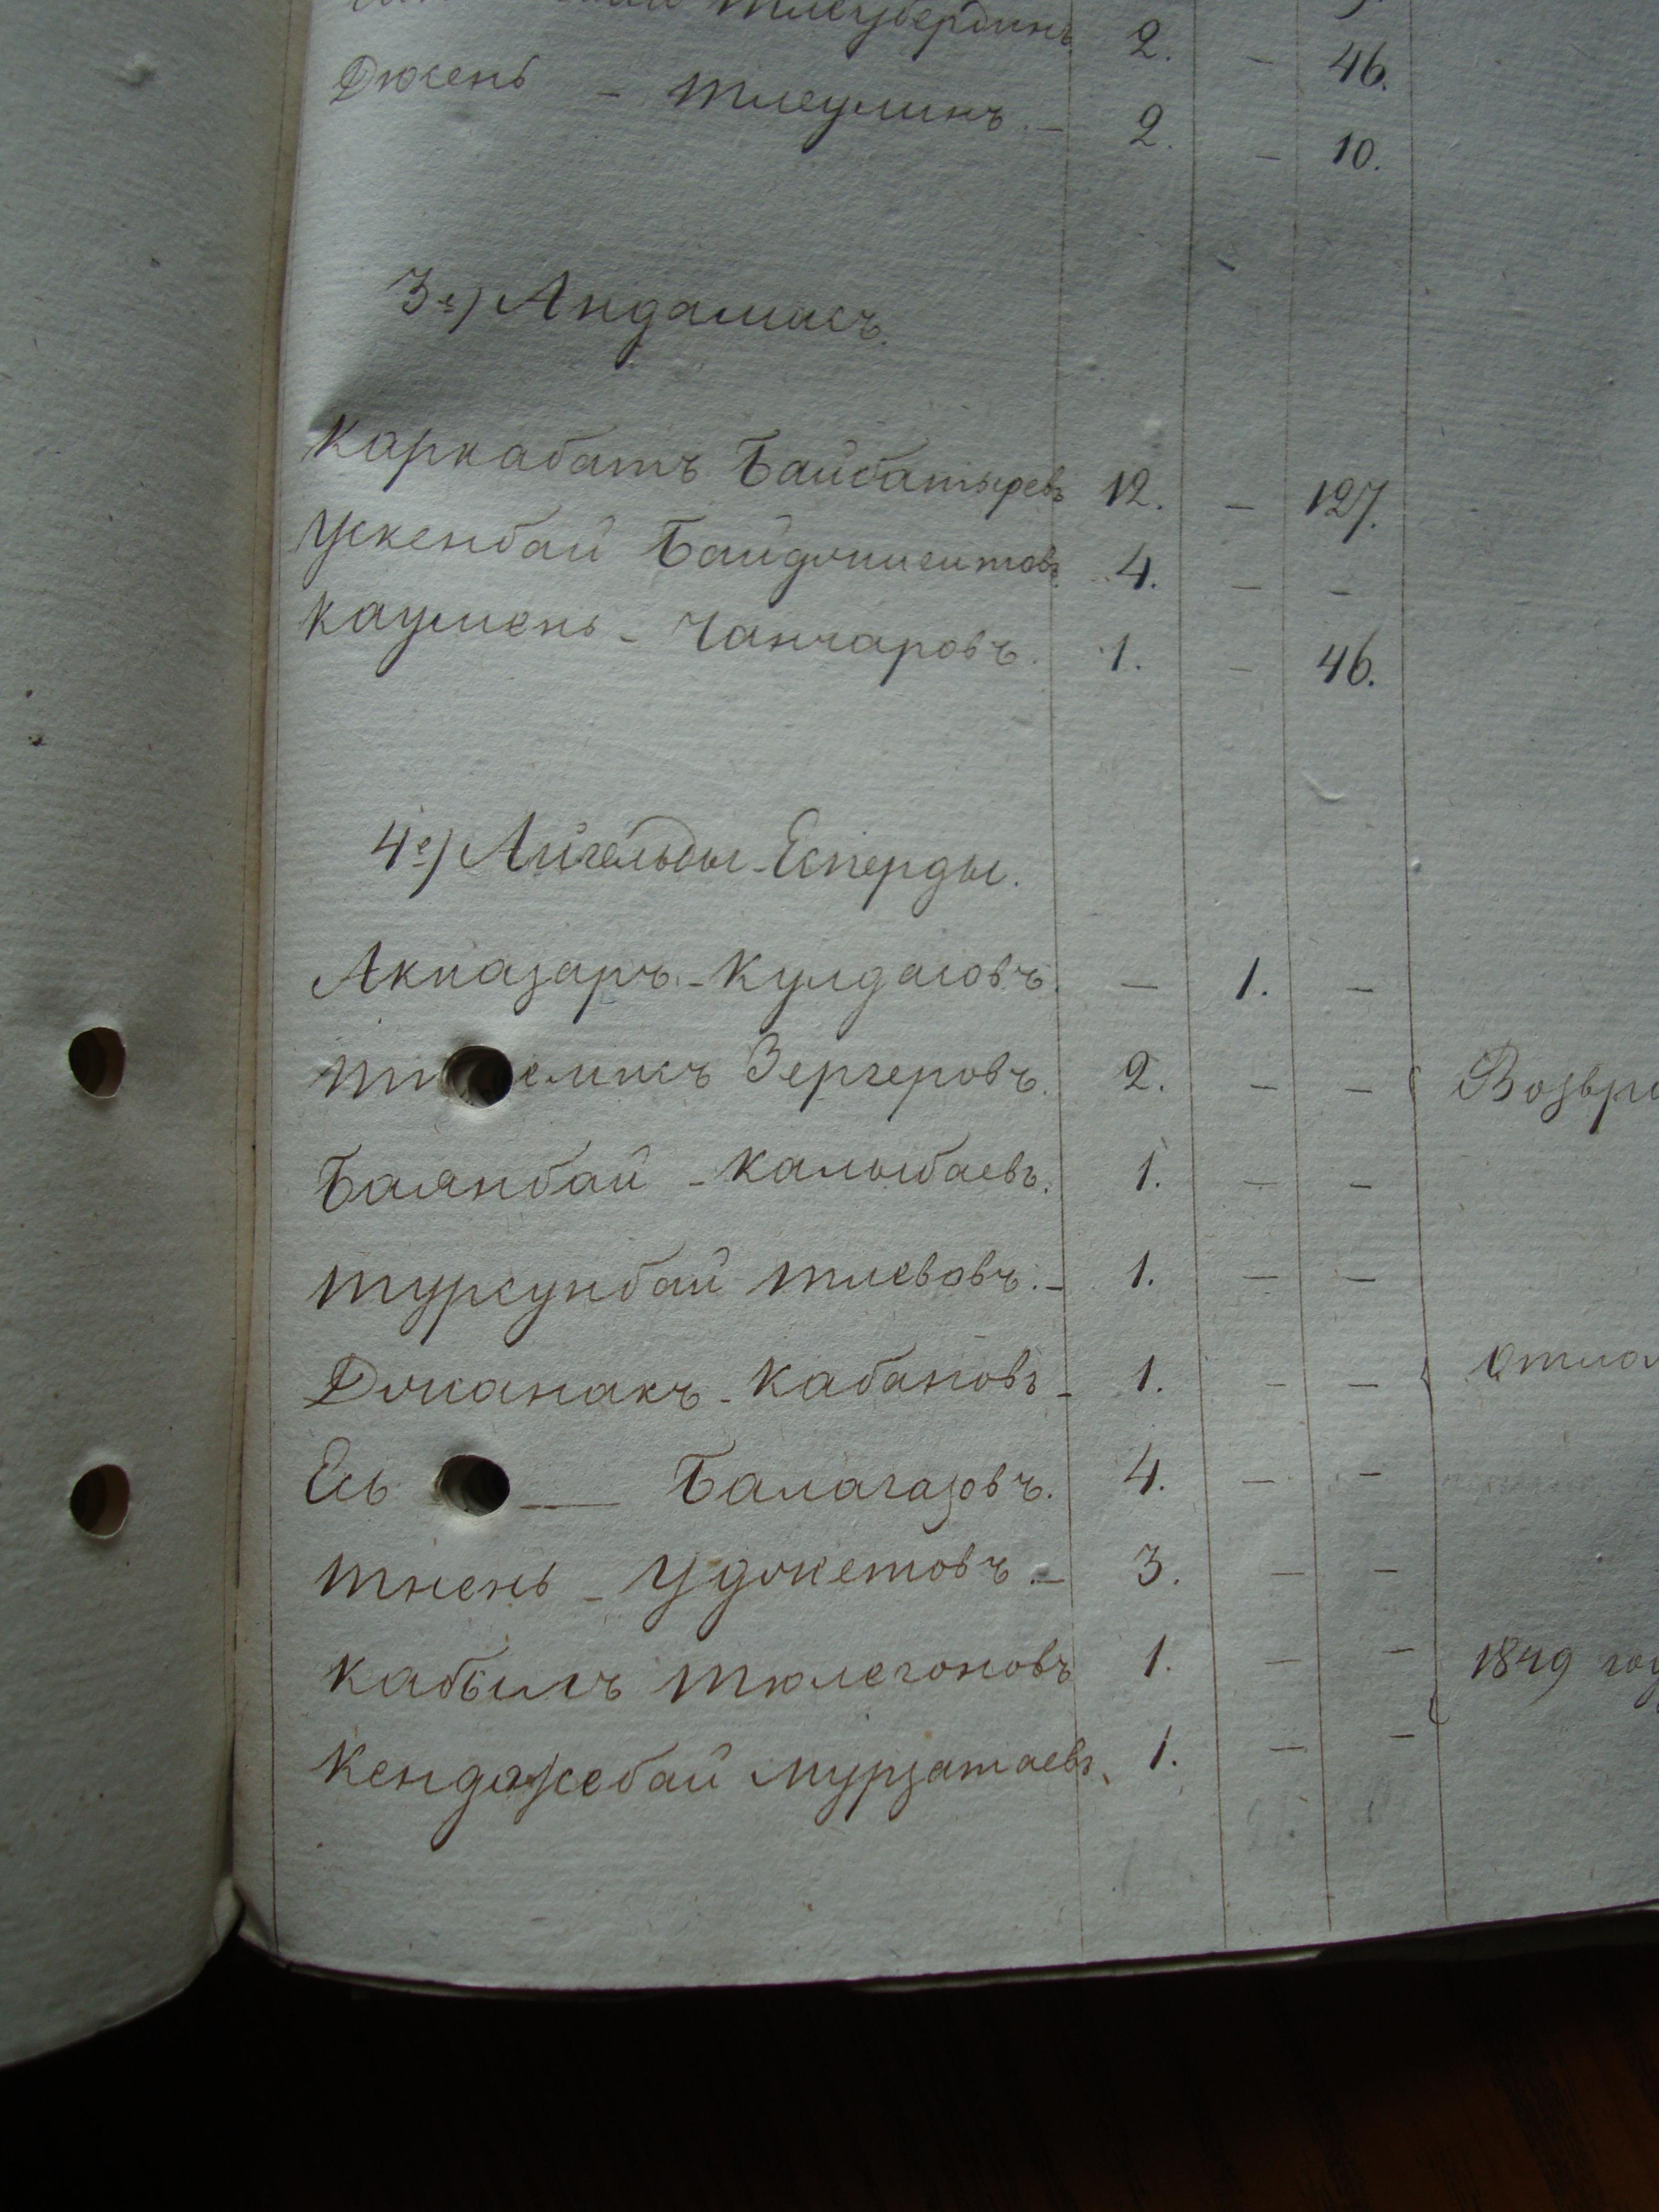 Тлеубердинъ 2. - 46.
Дюсень - Тлеулинъ. - 2. - 10.
3е) Андамасъ.
Каркабатъ Байбатыревъ 12. - 127.
Ускенбай Байджиеитовъ. 4. - -
Каумень - Чанчаровъ. 1. - 46.
4е) Айгельды-Есперды.
Акназаръ. - Кулдасовъ. - 1. -
Зергеровъ. 2. - - Возвра
Баянбай - Калыбаевъ. 1. - -
Турсунбай Тлевовъ. - 1. - -
Джанакъ - Кабановъ - 1. - -
Есь — Балагазовъ. 4. - -
Тнень - Уджетовъ. - 3. - -
Кабылъ Тюлегоновъ 1. - - 1849 год
Кенджебай Мурзатаевъ. 1. - -